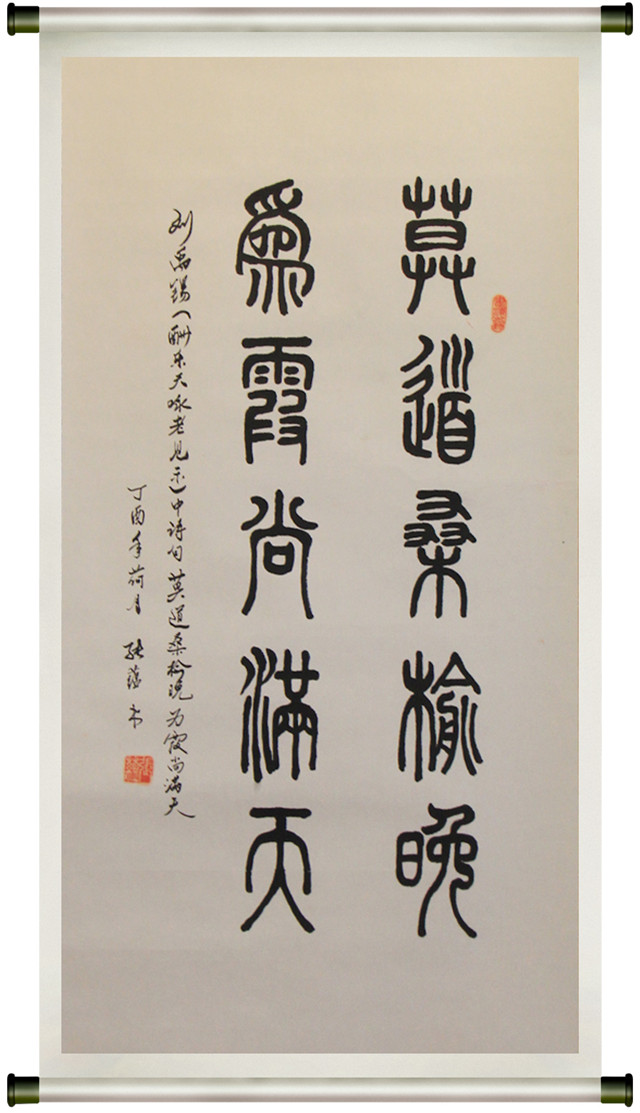 莫道桑榆晚
為霞尚满天
刘禹锡(酬乐天咏老见示)中诗句 莫道桑榆晚 为霞尚满天
丁酉年荷月 张 书